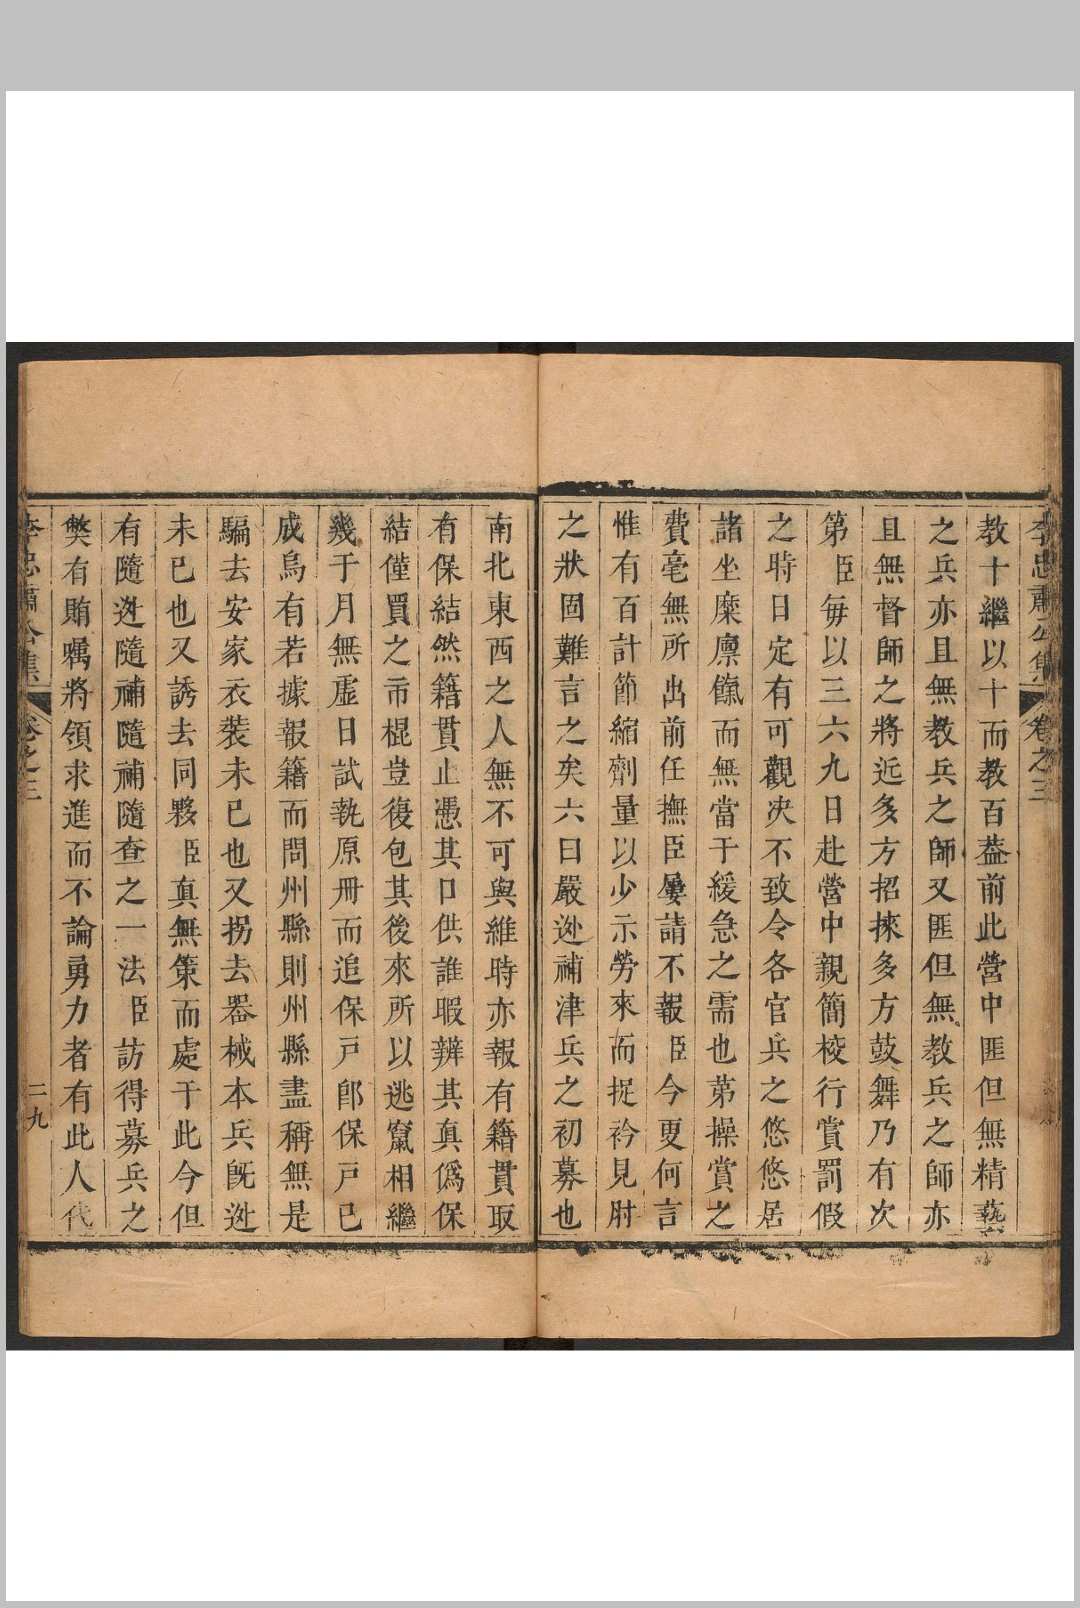 李忠肅公集 卷之三
教十繼以十而教百葢前此營中匪但無精藝
之兵亦且無教兵之師又匪但無教兵之師亦
且無督師之將近多方招揀多方鼓舞乃有次
第臣每以三六九日赴營中親簡校行賞罰假
之時日定有可觀决不致令各官兵之悠悠居
諸坐糜廪餼而無當于緩急之需也第操賞之
費毫無所出前任撫臣屢請不報臣今更何言
惟有百計節縮劑量以少示勞來而捉衿見肘
之狀固難言之矣六曰嚴逃補津兵之初募也
南北東西之人無不可與維時亦報有籍貫取
有保結然籍貫止憑其口供誰暇辨其真僞保
結僅買之市棍豈復包其後來所以逃竄相繼
幾于月無虛日試執原冊而追保戸郎保戸已
成烏有若據報籍而問州縣則州縣盡稱無是
騙去安家衣裝未已也又拐去器械本兵旣逃
未已也又誘去同夥臣真無策而處于此今但
有隨逃隨補隨補隨查之一法臣訪得募兵之
獘有賄囑將領求進而不論勇力者有此人代
李忠肅公集 卷之三 二九